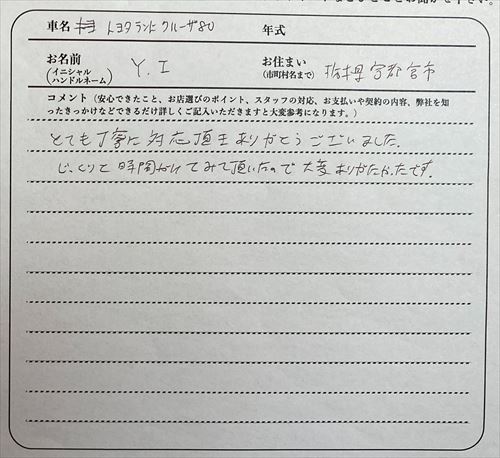 車名 トヨタランドクルーザ80 年式
お名前 Y.I お住まい 栃木県宇都宮市
(イニシャル
ハンドルネーム) (市町村名まで)
コメント(安心できたこと、お店選びのポイント、スタッフの対応、お支払いや契約の内容、弊社を知
ったきっかけなどできるだけ詳しくご記入いただきますと大変参考になります。)
とても丁寧に対応頂きありがとうございました.
じっくりと時間かけてみて頂いたので大変ありがたかったです.